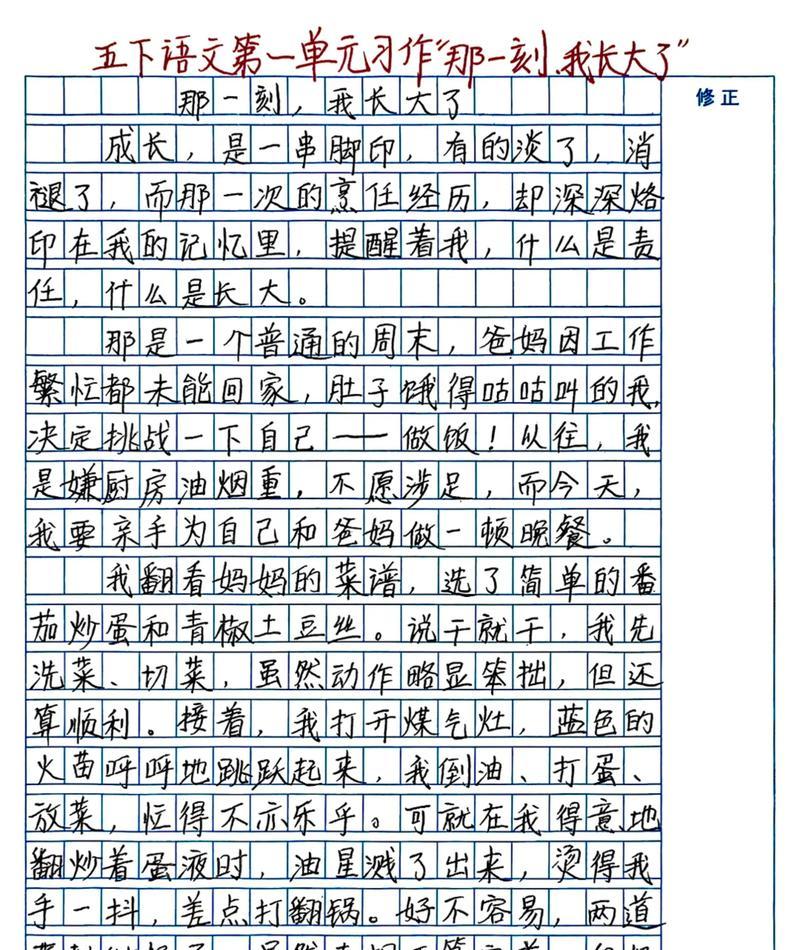 五下语文第一单元习作“那一刻,我长大了”
修正
那一刻，我长大了
成长，是一串脚印，有的淡了，消
褪了，而那一次的烹饪经历，却深深烙
印在我的记忆里，提醒着我，什么是责
任，什么是长大。
那是一个普通的周末，爸妈因工作
繁忙都未能回家，肚子饿得咕咕叫的我，
决定挑战一下自己——做饭！以往，我
是嫌厨房油烟重，不愿涉足，而今天，
我要亲手为自己和爸妈做一顿晚餐。
我翻看妈妈的菜谱，选了简单的番
茄炒蛋和青椒土豆丝。说干就干，我先
洗菜、切菜，虽然动作略显笨拙，但还
算顺利。接着，我打开煤气灶，蓝色的
火苗呼呼地跳跃起来，我倒油、打蛋、
放菜，忙得不亦乐乎。可就在我得意地
翻炒着蛋液时，油星溅了出来，烫得我
手一抖，差点打翻锅。好不容易，两道